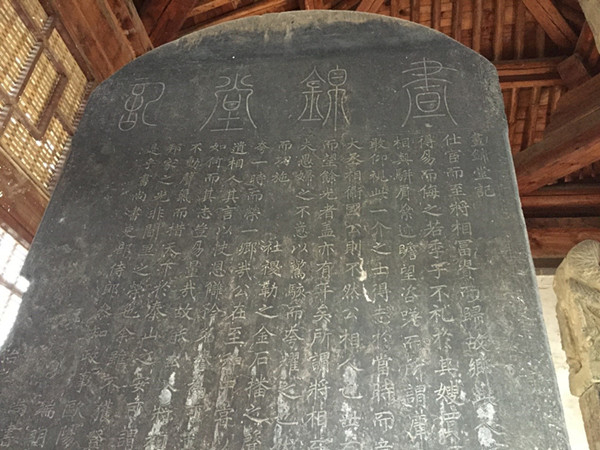 晝錦堂記
晝錦堂記
仕宦而至將相富貴而歸故鄉此人
得易而侮之若季子不礼於其嫂買
相與駢肩累迹瞻望咨嗟而所謂庸
敢仰視此一介之士得志於當時而意
大丞相衛國公則不然公相人也世有
而望餘光者蓋亦有年矣所謂將相而
夫愚婦之不意以驚駭而夸耀之也
而功施 社稷勒之金石播之聲
夸一時而榮一鄉哉公在至和中嘗
遺相人其言以快恩讎矜名譽
如何而其志豈易量哉故能出入將相
不動聲氣而措天下於泰山之安可謂
邦家之光非閭里之榮也余雖不獲登
是乎書尚書吏部侍郎參知政事歐陽